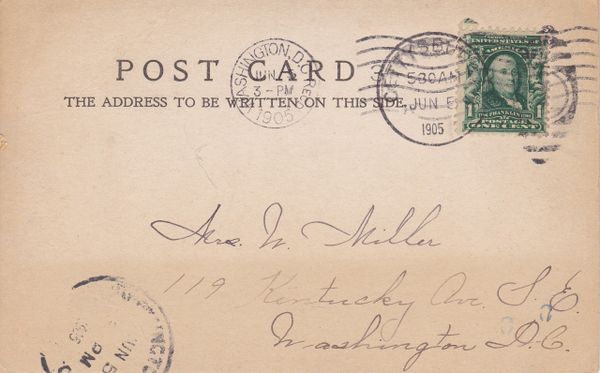 POST CARD
THE ADDRESS TO BE WRITTEN ON THIS SIDE.
WASHINGTON, D.C. REC'D
JUN
3-PM
1905
GETTYSBURG
530AM
JUN 5
1905
UNITED STATES OF AMERICA
1 1
FRANKLIN
POSTAGE
ONE CENT
Mrs. W. Miller
119 Kentucky Ave. S.E.
Washington D.C.
JUN 5
PM
1905